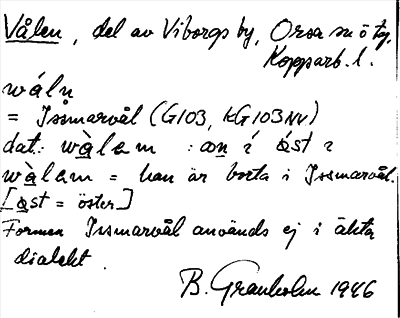 Vålen, del av Viborgs by, Orsa sn ö tg,
Kopparb. l.
wáln
= Issmarvål (G103, KG103NV)
dat: wàlem : an í óst i
wàlem = han är borta i Issmarvål.
[óst = öster]
Formen Issmarvål används ej i äkta
dialekt.
B. Granholm 1946